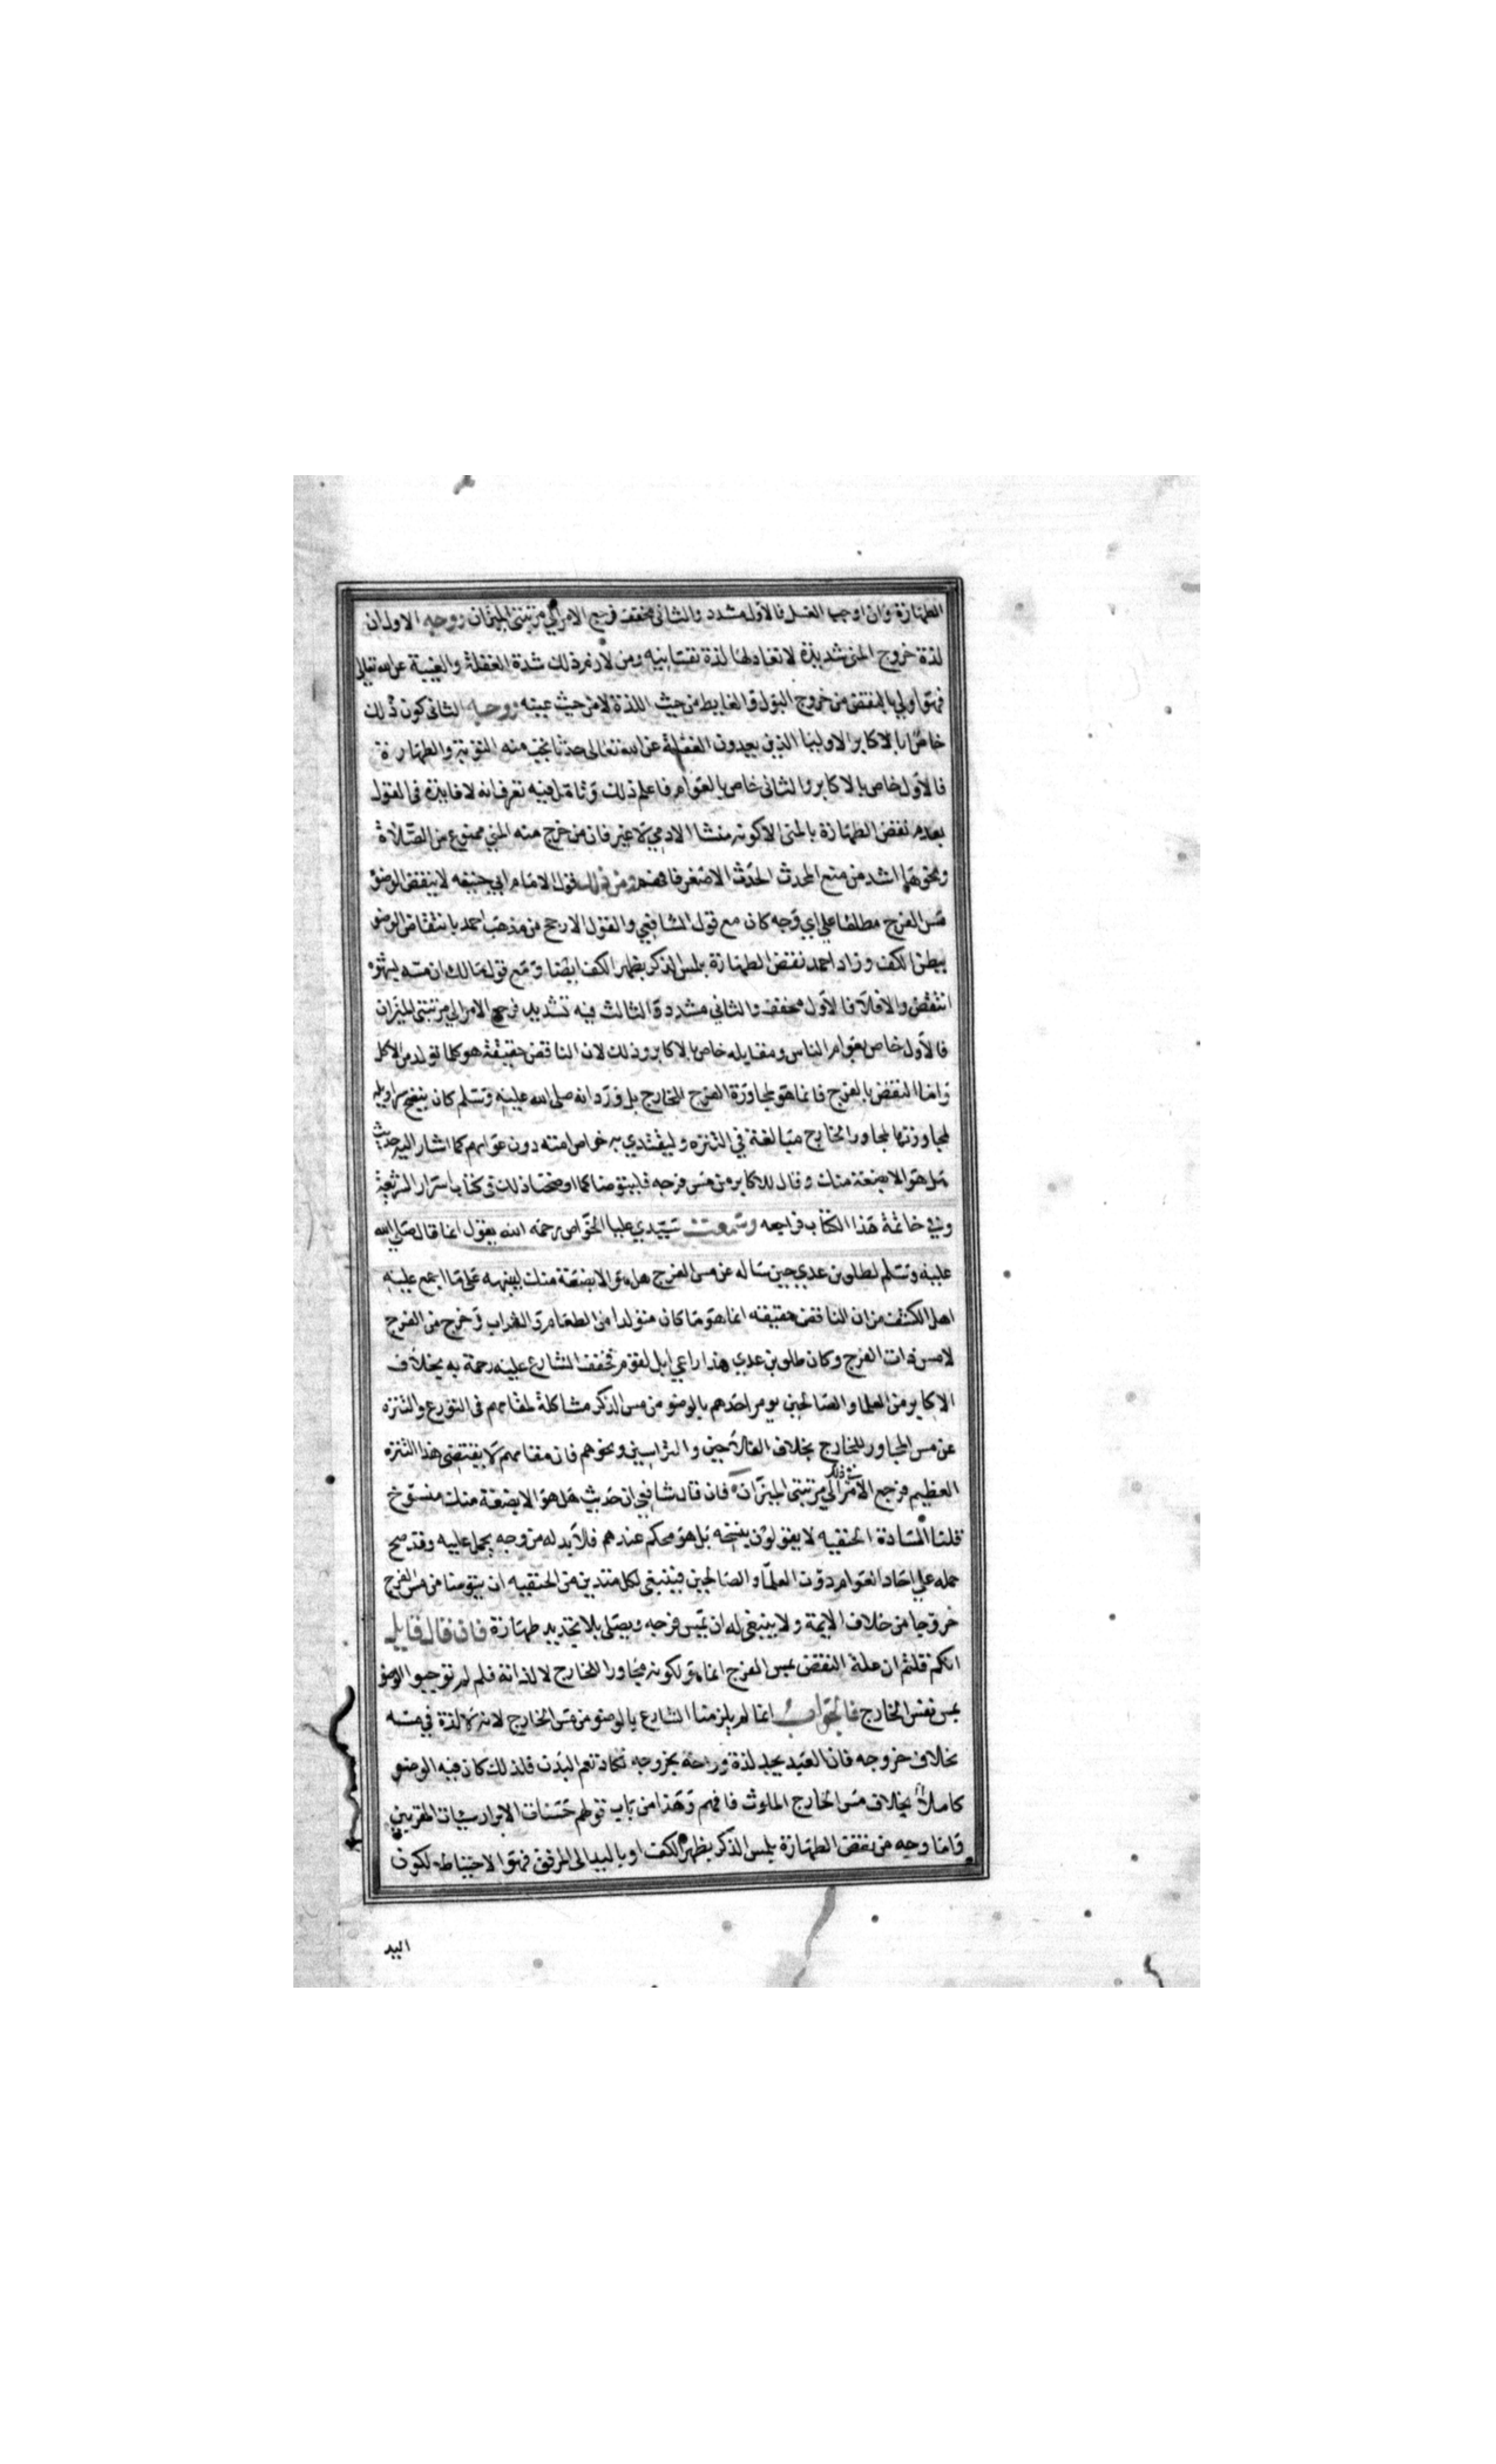 الطهارة وان اوجب الغسل فالاول مشدد والثانى مخفف فرجع الامر الي مرتبتى الميزان ووجه الاول ان
لذة خروج المنى شديدة لا تعادلها لذة نفسانيه ومن لازم ذلك شدة الغفلة والغيبة عن الله تعالى
فهو اولي بالنقض من خروج البول والغايط من حيث اللذة لا من حيث عينه ووجه الثانى كون ذلك
خاصا بالاكابر الاوليا الذين يعدون الغفلة عن الله تعالى حدثا تجب منه التوبة والطهارة
فالاول خاص بالاكابر والثانى خاص بالعوام فاعلم ذلك وتامل فيه تعرف انه لا فايدة فى القول
بعدم نقض الطهارة بالمنى الا كونه منشا الادمي لا غير فان من خرج منه المني ممنوع من الصلاة
ونحوها اشد من منع المحدث الحدث الاصغر فافهم ومن ذلك قول الامام ابي حنيفه لا ينقض الوضو
مس الفرج مطلقا علي اي وجه كان مع قول الشافعي والقول الارجح من مذهب احمد بانتقاض الوضو
ببطن الكف وزاد احمد نقض الطهارة بلمس الذكر بظهر الكف ايضا ومع قول مالك ان مسه بشهوة
انتقض والا فلا فالاول مخفف والثاني مشدد والثالث فيه تشديد فرجع الامر الي مرتبتى الميزان
فالاول خاص بعوام الناس ومقابله خاص بالاكابر وذلك لان الناقض حقيقة هو كلما تولد من الاكل
واما النقض بالفرج فانما هو لمجاورة الفرج للخارج بل ورد انه صلى الله عليه وسلم كان ينضح سراويله
لمجاورتها لمجاور الخارج مبالغة في التنزه وليقتدي به خواص امته دون عوامهم كما اشار اليه حديث
هل هو الا بضعة منك وقال للاكابر من مس فرجه فليتوضا كما اوضحنا ذلك فى كتاب اسرار الشريعة
وفي خاتمة هذا الكتاب فراجعه وسمعت سيدي عليا الخواص رحمه الله يقول انما قال صلي الله
عليه وسلم لطلق بن عدي حين ساله عن مس الفرج هل هو الا بضعة منك لينبهه على ما اجمع عليه
اهل الكشف من ان الناقض حقيقه انما هو ما كان متولدا من الطعام والشراب وخرج من الفرج
لا مس ذات الفرج وكان طلق بن عدي هذا راعي ابل لقوم فخفف الشارع عليه رحمة به بخلاف
الاكابر من العلما والصالحين يومر احدهم بالوضو من مس الذكر مشاكلة لمقامهم فى التورع والتنزه
عن مس المجاور للخارج بخلاف الفلاحين والتراسين ونحوهم فان مقامهم لا يقتضى هذا التنزه
العظيم فرجع الامر في ذلك الي مرتبتى الميزان فان قال شافعي ان حديث هل هو الا بضعة منك منسوخ
قلنا السادة الحنفيه لا يقولون بنسخه بل هو محكم عندهم فلا بد له من وجه يحمل عليه وقد صح
حمله علي احاد العوام دون العلما والصالحين فينبغى لكل متدين من الحنفيه ان يتوضا من مس الفرج
خروجا من خلاف الايمة ولا ينبغى له ان يمس فرجه ويصلى بلا تجديد طهارة فان قال قايل
انكم قلتم ان علة النقض بمس الفرج انما هو لكونه مجاورا للخارج لا لذاته فلم لم توجبوا الوضو
بمس نفس الخارج فالجواب انما لم يلزمنا الشارع بالوضو من مس الخارج لانه لا لذة في مسه
بخلاف خروجه فان العبد يجد لذة وراحة بخروجه تكاد تعم البدن فلذلك كان فيه الوضو
كاملا بخلاف مس الخارج الملوث فافهم وهذا من باب قولهم حسنات الابرار سيات المقربين
واما وجه من نقض الطهارة بلمس الذكر بظهر الكف او باليد الى المرفق فهو الاحتياط لكون
اليد